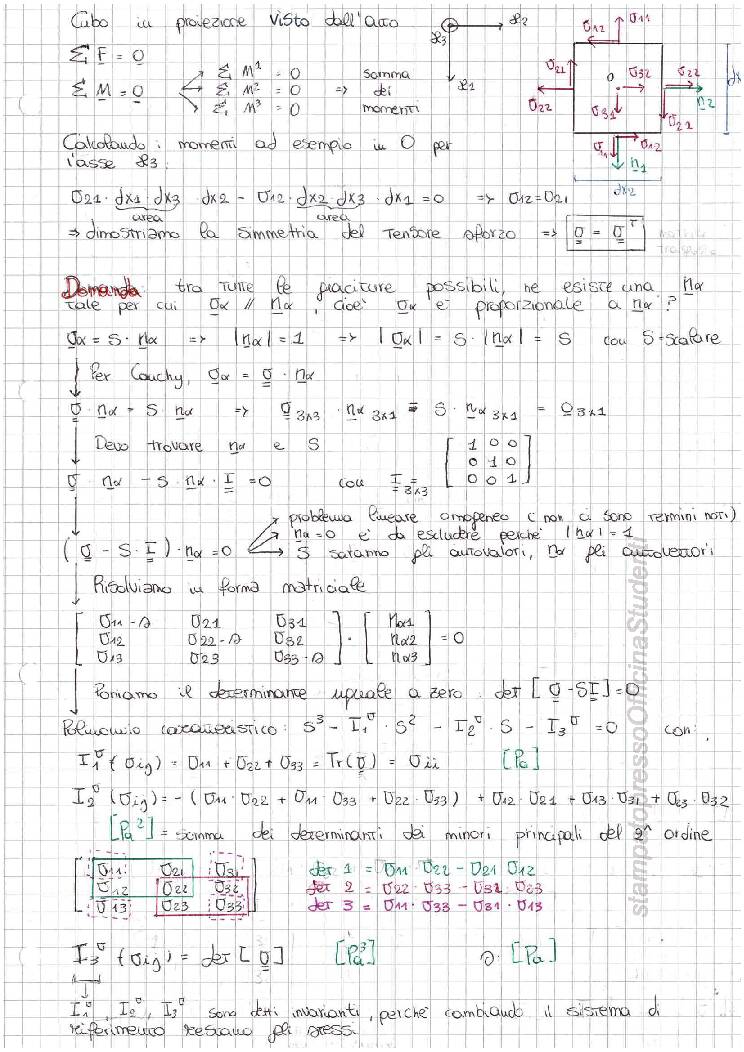 Cubo in proiezione visto dall'alto
Σ F = 0
Σ M = 0 → Σ M¹ = 0 somma
→ Σ M² = 0 => dei
→ Σ M³ = 0 momenti
x3 x2
x1
σ11
σ12
σ21 O σ32 σ22
σ22 σ31 n2
σ21
σ11 σ12
n1
dx2
dx1
Calcolando i momenti ad esempio in O per
l'asse x3:
σ21 · dx1 · dx3 · dx2 - σ12 · dx2 · dx3 · dx1 = 0 => σ12 = σ21
area area
=> dimostriamo la simmetria del tensore sforzo => σ = σᵀ matrice
trasposta
Domanda: tra tutte le giaciture possibili, ne esiste una nα
tale per cui σα // nα, cioè σα è proporzionale a nα?
σα = S · nα => |nα| = 1 => |σα| = S · |nα| = S con S = scalare
Per Cauchy, σα = σ · nα
σ · nα = S nα => σ 3x3 · nα 3x1 = S · nα 3x1 = 0 3x1
Devo trovare nα e S
σ · nα - S · nα · I = 0 con I 3x3 = [ 1 0 0
0 1 0
0 0 1 ]
→ problema lineare omogeneo (non ci sono termini noti)
(σ - S · I) · nα = 0 → nα = 0 è da escludere perché |nα| = 1
→ S saranno gli autovalori, nα gli autovettori
Risolviamo in forma matriciale
[ σ11 - s σ21 σ31 ] · [ nα1 ]
[ σ12 σ22 - s σ32 ] [ nα2 ] = 0
[ σ13 σ23 σ33 - s ] [ nα3 ]
Poniamo il determinante uguale a zero: det [σ - SI] = 0
Polinomio caratteristico: S³ - I₁σ · S² - I₂σ · S - I₃σ = 0 con:
I₁σ (σij) = σ11 + σ22 + σ33 = Tr(σ) = σii [Pa]
I₂σ (σij) = -(σ11 · σ22 + σ11 · σ33 + σ22 · σ33) + σ12 · σ21 + σ13 · σ31 + σ23 · σ32
[Pa²] = somma dei determinanti dei minori principali del 2^ ordine
[ σ11 σ21 σ31 ] det 1 = σ11 · σ22 - σ21 σ12
[ σ12 σ22 σ32 ] det 2 = σ22 · σ33 - σ32 σ23
[ σ13 σ23 σ33 ] det 3 = σ11 · σ33 - σ31 · σ13
I₃σ (σij) = det [σ] [Pa³] s: [Pa]
I₁σ, I₂σ, I₃σ sono detti invarianti, perché cambiando il sistema di
riferimento restano gli stessi
stampatopressoOfficinaStudenti